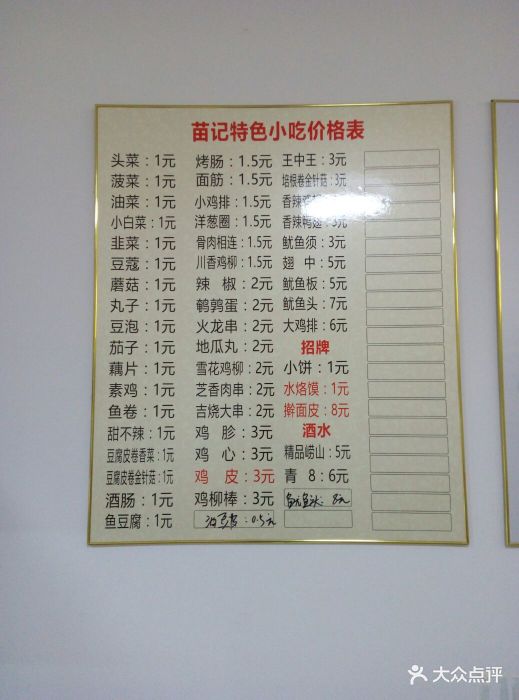 苗记特色小吃价格表
头菜：1元
菠菜：1元
油菜：1元
小白菜：1元
韭菜：1元
豆蔻：1元
蘑菇：1元
丸子：1元
豆泡：1元
茄子：1元
藕片：1元
素鸡：1元
鱼卷：1元
甜不辣：1元
豆腐皮卷香菜：1元
豆腐皮卷金针菇：1元
酒肠：1元
鱼豆腐：1元
烤肠：1.5元
面筋：1.5元
小鸡排：1.5元
洋葱圈：1.5元
骨肉相连：1.5元
川香鸡柳：1.5元
辣椒：2元
鹌鹑蛋：2元
火龙串：2元
地瓜丸：2元
雪花鸡柳：2元
芝香肉串：2元
吉烧大串：2元
鸡胗：3元
鸡心：3元
鸡皮：3元
鸡柳棒：3元
：0.5元
王中王：3元
培根卷金针菇：3元
香辣
香辣鸭翅：3元
鱿鱼须：3元
翅中：5元
鱿鱼板：5元
鱿鱼头：7元
大鸡排：6元
招牌
小饼：1元
水烙馍：1元
擀面皮：8元
酒水
精品崂山：5元
青8：6元
鱿鱼头：8元
大众点评